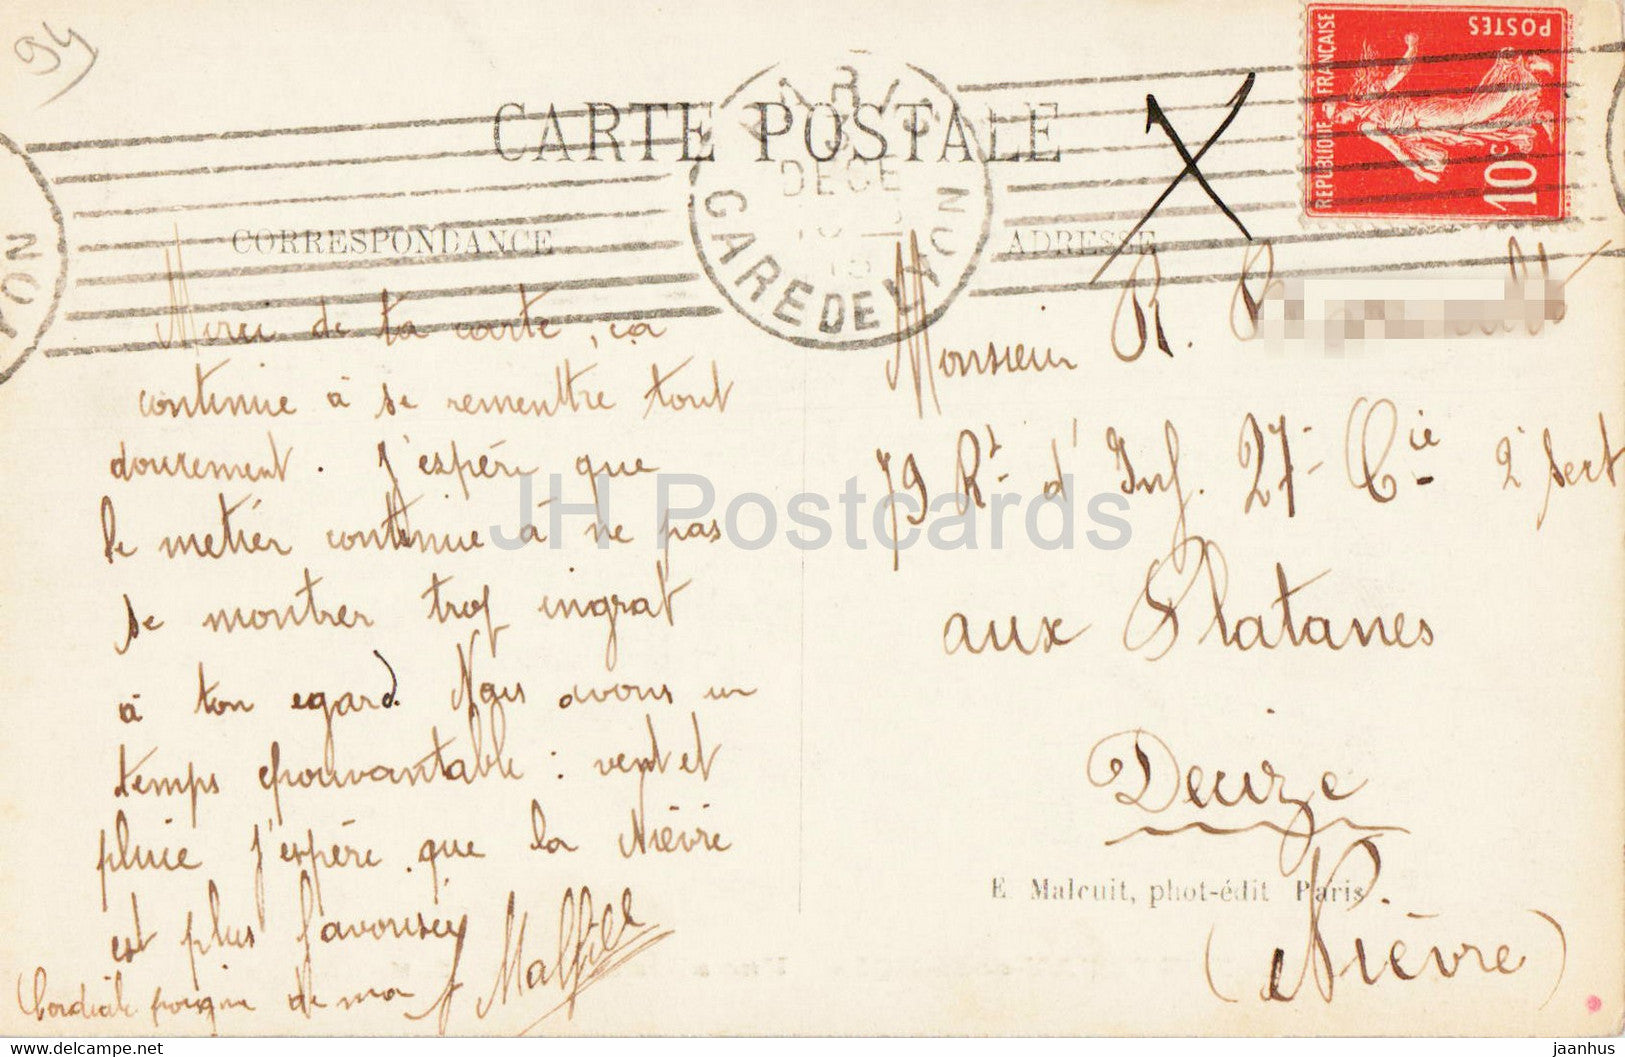 94
CARTE POSTALE
CORRESPONDANCE
ADRESSE
PARIS
3
DECE
GARE DE LYON
YON
REPUBLIQUE - FRANÇAISE
POSTES
10c
Merci de ta carte, ça
continue à se remettre tout
doucement. J'espère que
le métier continue à ne pas
se montrer trop ingrat
à ton egard. Nous avons un
temps épouvantable : vent et
pluie j'espère que la Nièvre
est plus favorisée
Cordiale poignée de ma
Monsieur R.
79 Rt d'Inf. 27e Cie 2e Sect
aux Platanes
Decize
(Nièvre)
E. Malcuit, phot-édit Paris
JH Postcards
https://www.jhpostcards.com
jaanhus